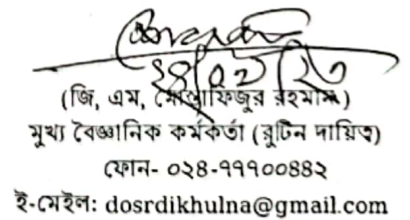 (জি, এম, মোস্তাফিজুর রহমান)
মুখ্য বৈজ্ঞানিক কর্মকর্তা (রুটিন দায়িত্ব)
ফোন- ০২৪-৭৭৭০০৪৪২
ই-মেইল: dosrdikhulna@gmail.com